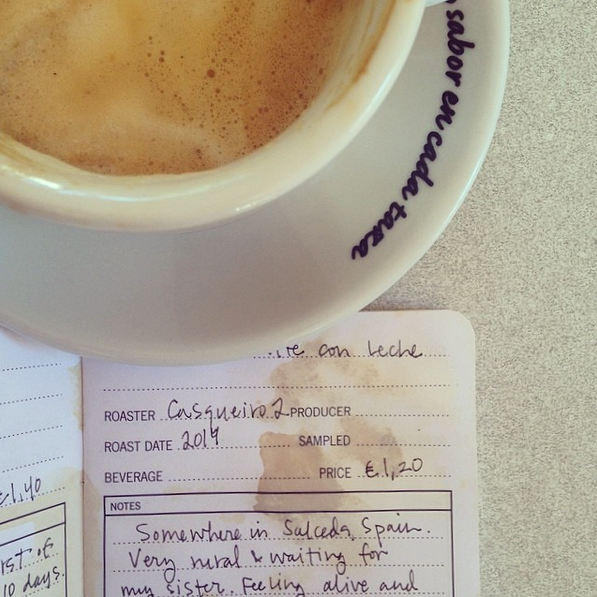 sabor en cada taza
con leche
ROASTER Casqueiro 2 PRODUCER
ROAST DATE 2014 SAMPLED
BEVERAGE PRICE €1,20
NOTES
Somewhere in Salceda, Spain.
Very rural & waiting for
my sister. Feeling alive and
€1,40
of
10 days.